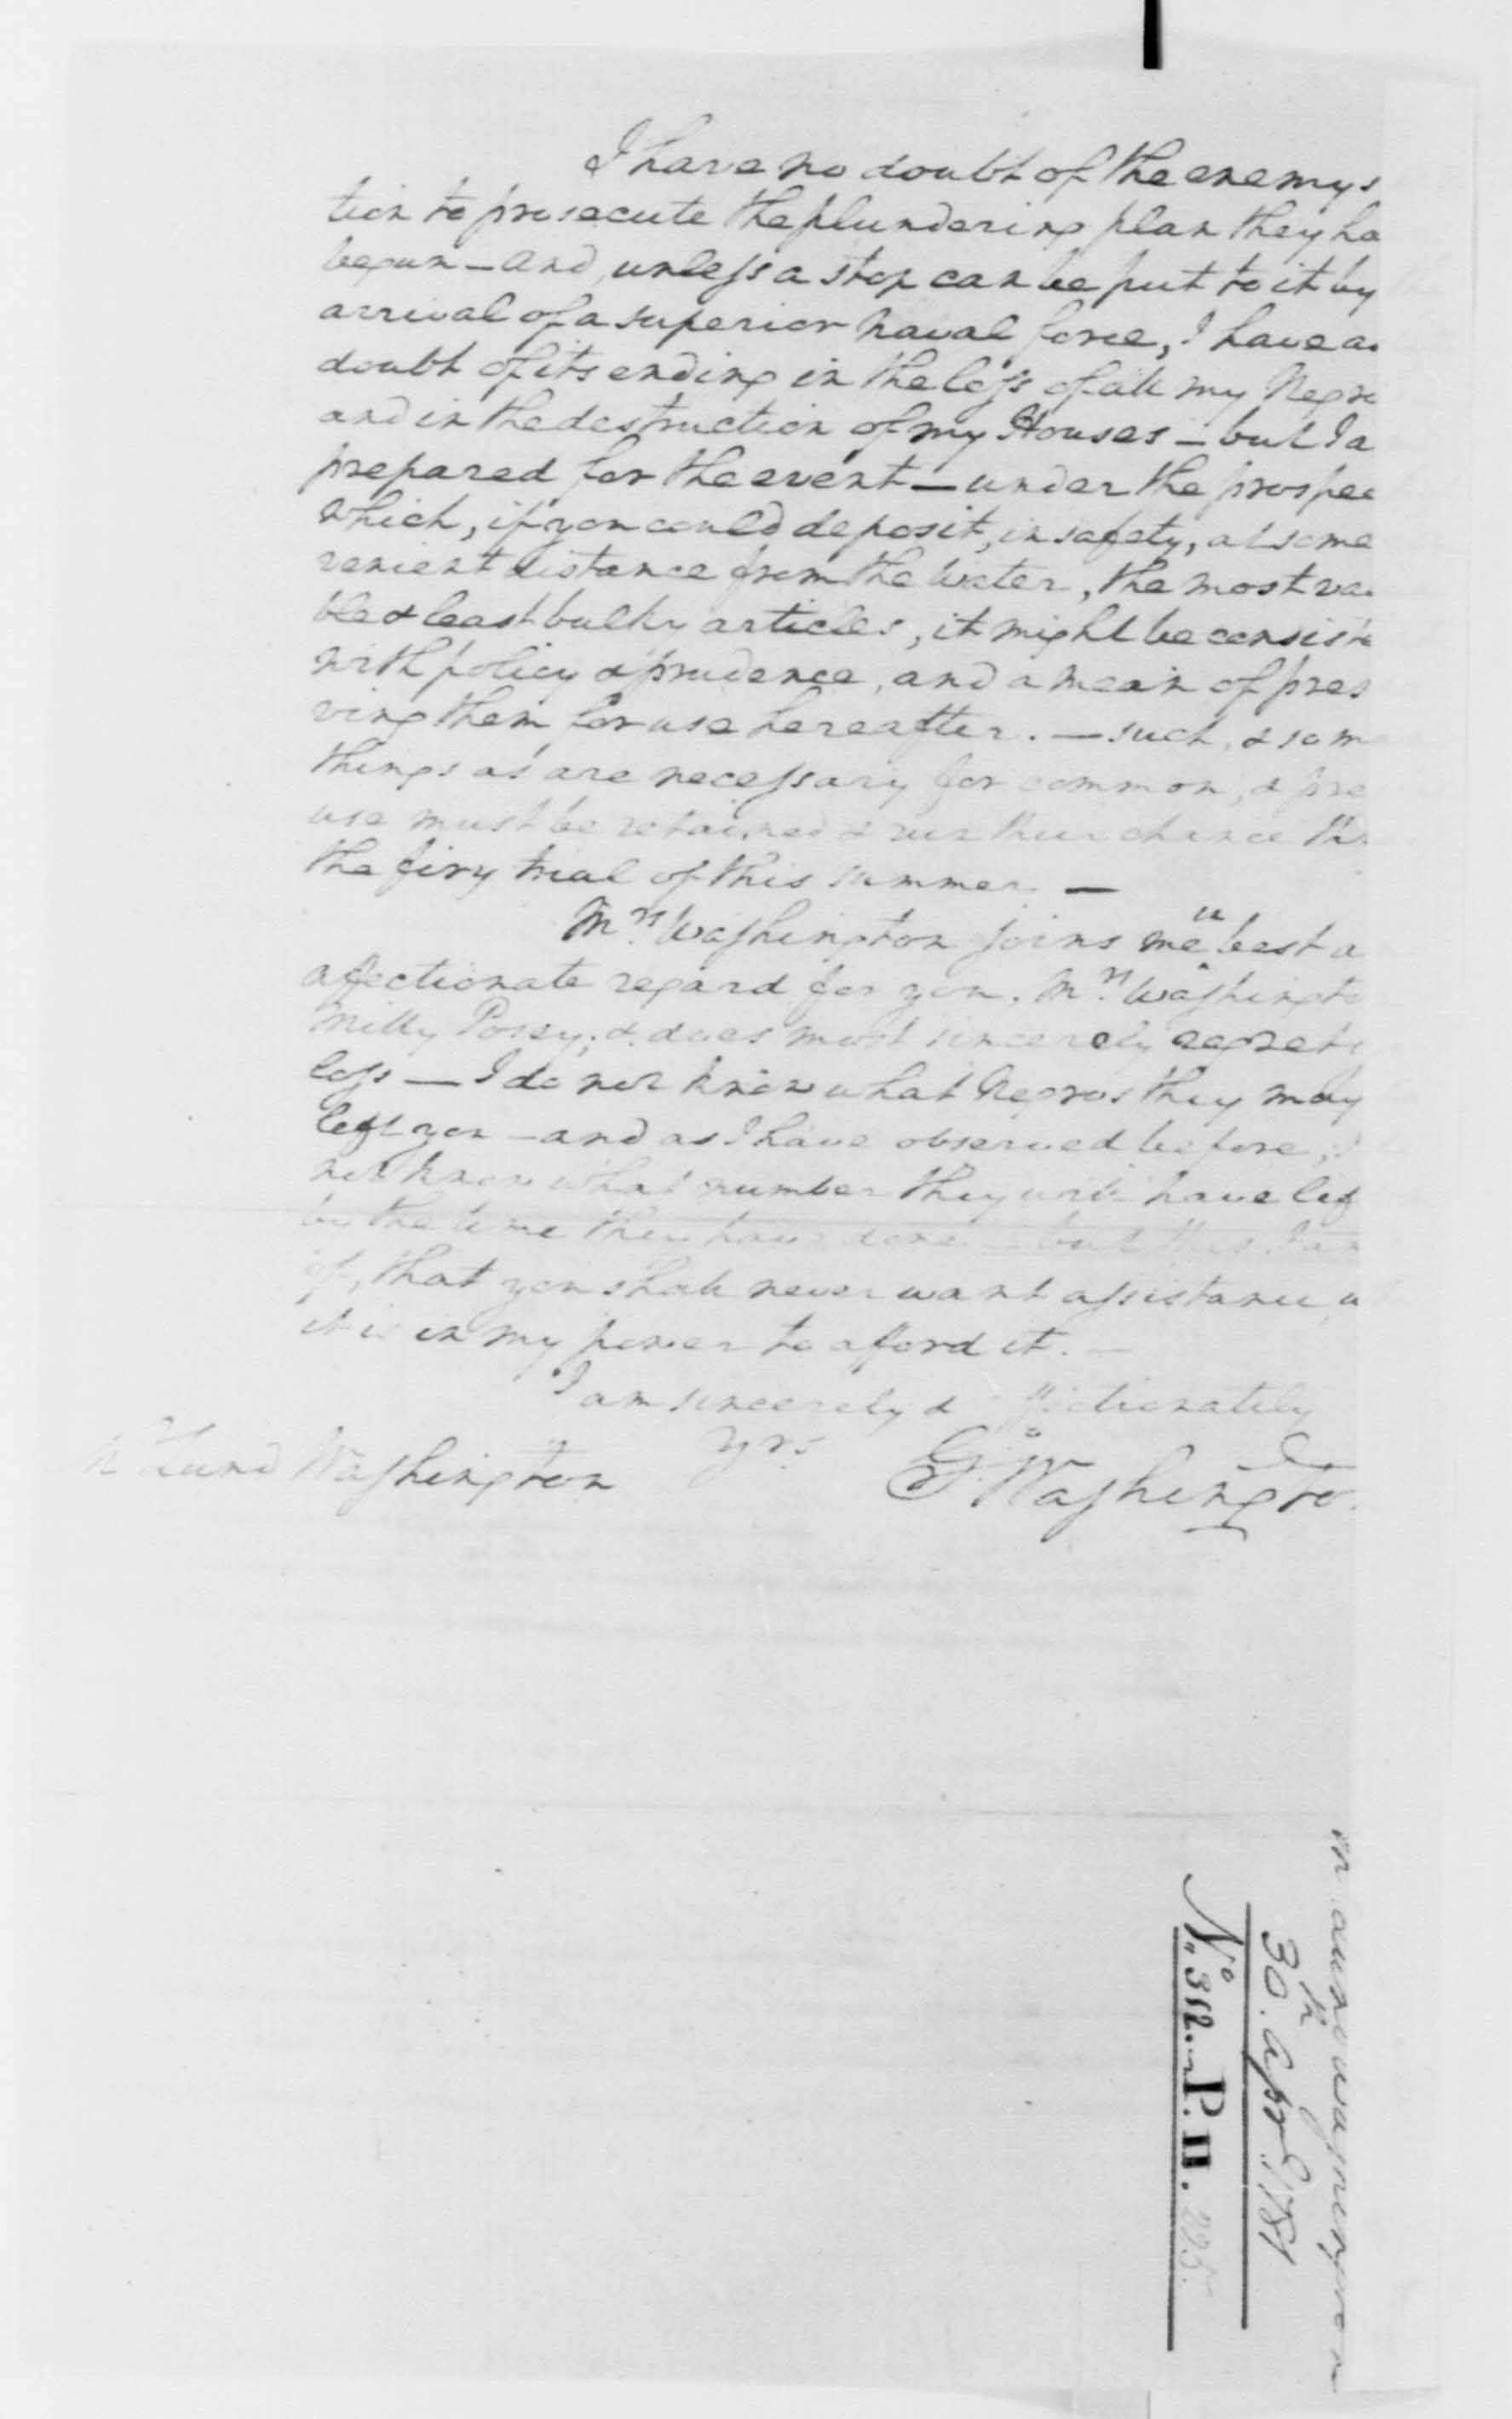 I have no doubt of the enemys
tion to prosecute the plundering plan they ha
begun – and, unless a stop can be put to it by
arrival of a superior naval force, I have as
doubt of its ending in the loss of all my Negro
and in the destruction of my Houses – but I a
prepared for the event – under the prospec
which, if you could deposit, in safety, at some
venient distance from the Water, the most va
ble & least bulky articles, it might be consiste
with policy & prudence, and a mean of pres
ving them for use hereafter. – such, & som
things as are necessary for common, & pre
use must be retained & run their chance th
the firy trial of this summer. –
Mrs. Washington joins me in best a
affectionate regard for you, Mrs. Washingto
Milly Posey; & does most sincerely regret
loss – I do not know what Negros they may
left you – and as I have observed before, I
not know what number they will have lef
by the time they have done – but this I am
of, that you shall never want assistance, w
it is in my power to afford it. –
I am sincerely & affectionately
Yrs
Go: Washington
Lund Washington
Washington
30th. Aprl. 1781
No
No. 312. P. II. 225.